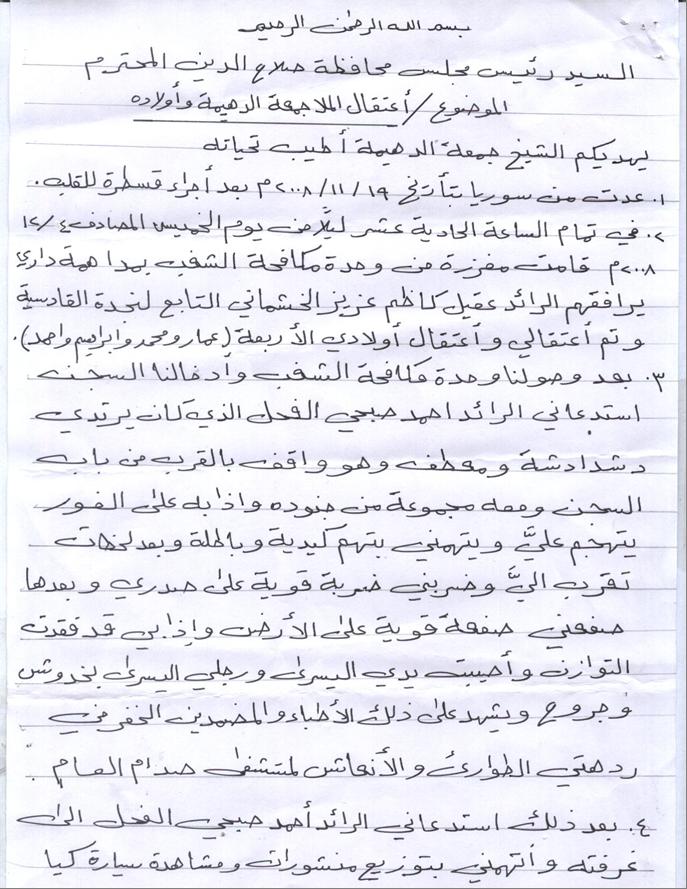 بسم الله الرحمن الرحيم
السيد رئيس مجلس محافظة صلاح الدين المحترم
الموضوع / أعتقال الملا جمعة الدهيمة وأولاده
يهديكم الشيخ جمعة الدهيمة أطيب تحياته
١. عدت من سوريا بتأريخ ١٩/١١/٢٠٠٨م بعد أجراء قسطرة للقلب.
٢. في تمام الساعة الحادية عشر ليلًا من يوم الخميس المصادف ٤/١٢
٢٠٠٨م قامت مفرزة من وحدة مكافحة الشغب بمداهمة داري
يرافقهم الرائد عقيل كاظم عزيز الخشماني التابع لنجدة القادسية
وتم أعتقالي وأعتقال أولادي الأربعة (عمار ومحمد وابراهيم واحمد).
٣. بعد وصولنا وحدة مكافحة الشغب وأدخالنا السجن
استدعاني الرائد احمد صبحي الفحل الذي كان يرتدي
دشداشة ومعطف وهو واقف بالقرب من باب
السجن ومعه مجموعة من جنوده واذا به على الفور
يتهجم عليَّ ويتهمني بتهم كيدية وباطلة وبعد لحظات
تقرب اليَّ وضربني ضربة قوية على صدري وبعدها
صفعني صفعة قوية على الأرض وإذا بي قد فقدت
التوازن وأصيبت يدي اليسرى ورجلي اليسرى بخدوش
وجروح ويشهد على ذلك الأطباء والمضمدين الخفر في
ردهتي الطوارئ والأنعاش لمستشفى صدام العام.
٤. بعد ذلك استدعاني الرائد أحمد صبحي الفحل الى
غرفته وأتهمني بتوزيع منشورات ومشاهدة سيارة كيا